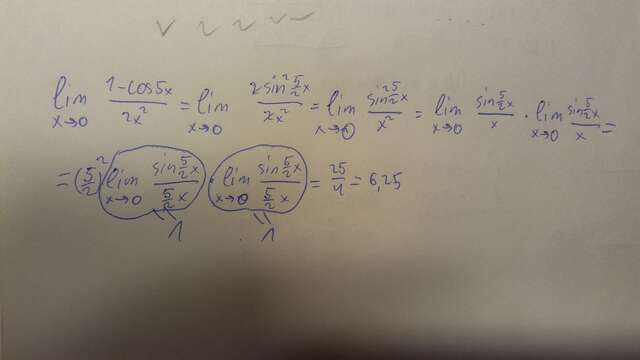 lim x→0 1-cos5x / 2x² = lim x→0 2 sin² 5/2 x / 2x² = lim x→0 sin² 5/2 x / x² = lim x→0 sin 5/2 x / x · lim x→0 sin 5/2 x / x =
= (5/2)² lim x→0 sin 5/2 x / 5/2 x · lim x→0 sin 5/2 x / 5/2 x = 25/4 = 6,25
1 1